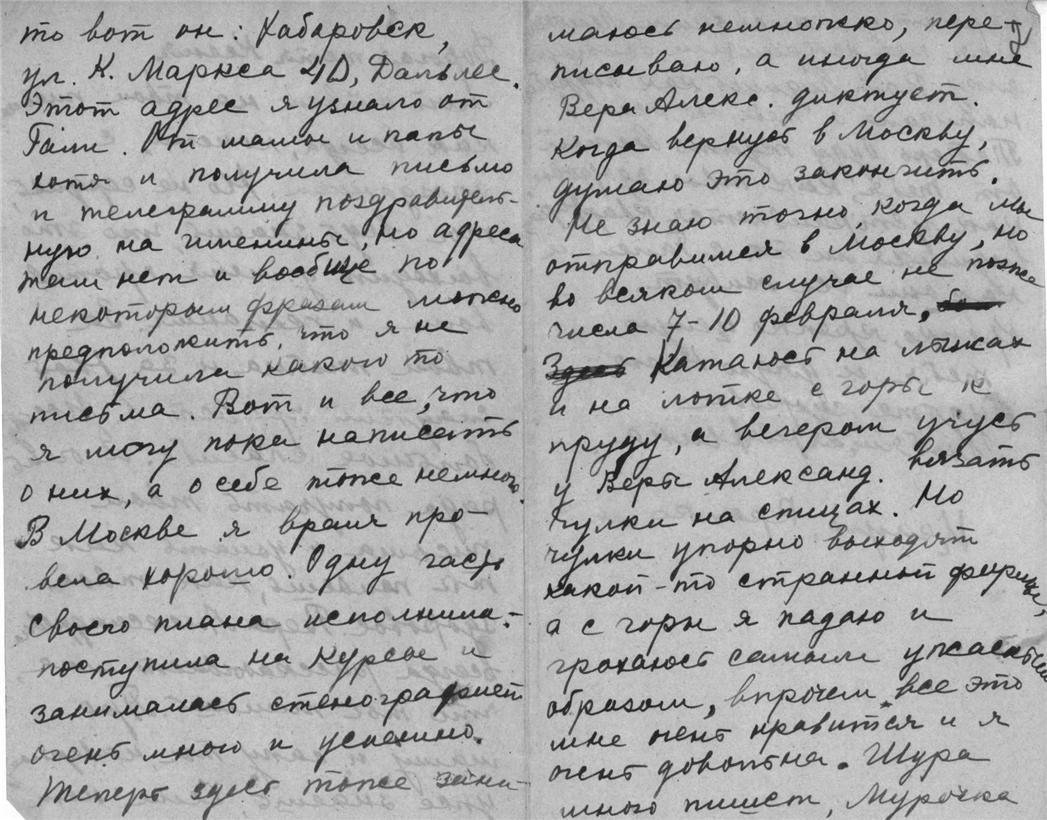 то вот он: Хабаровск,
ул. К. Маркса 40, Дальлес.
Этот адрес я узнала от
Гали. От мамы и папы
хотя и получила письмо
и телеграмму поздравитель-
ную на именины, но адреса
там нет и вообще по
некоторым фразам можно
предположить, что я не
получила какого то
письма. Вот и все, что
я могу пока написать
о них, а о себе тоже немного.
В Москве я время про-
вела хорошо. Одну часть
своего плана исполнила:-
поступила на курсы и
занималась стенографией
очень много и успешно.
Теперь здесь тоже зани-
маюсь немножко, пере-
писываю, а иногда мне
Вера Алекс. диктует.
Когда вернусь в Москву,
думаю это закончить.
Не знаю точно когда мы
отправимся в Москву, но
во всяком случае не позже
числа 7-10 февраля,
Здесь Катаюсь на лыжах
и на лотке с горы к
пруду, а вечером учусь
у Веры Александ. вязать
чулки на спицах. Но
чулки упорно выходят
какой-то странной формы,
а с горы я падаю и
грохаюсь самым ужасным
образом, впрочем все это
мне очень нравится и я
очень довольна. Шура
много пишет, Мурочка